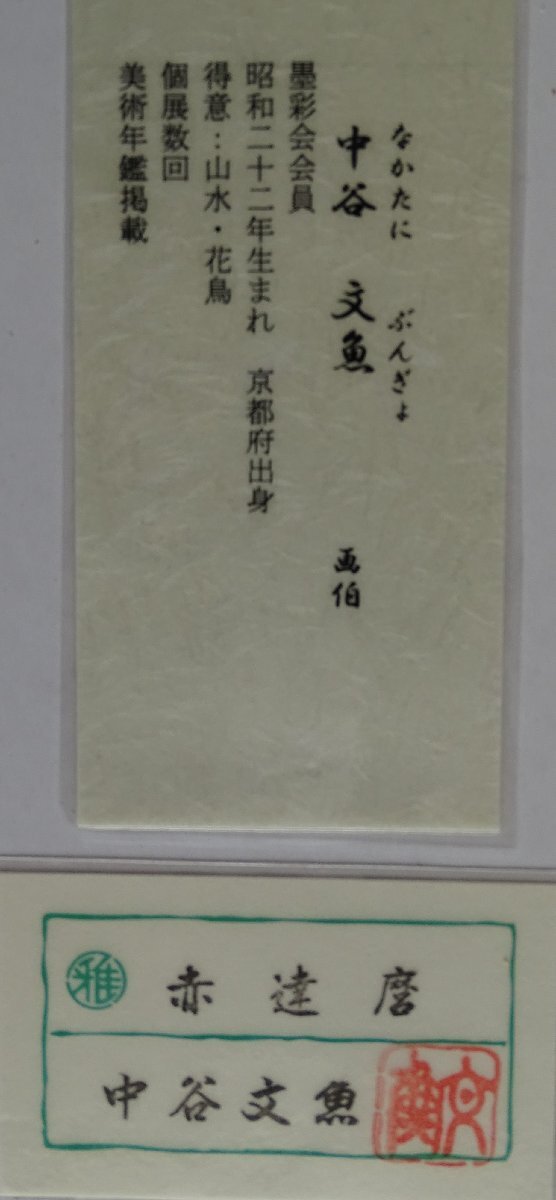 なかたに ぶんぎょ
中谷 文魚 画伯
墨彩会会員
昭和二十二年生まれ 京都府出身
得意:山水・花鳥
個展数回
美術年鑑掲載
雅 赤達磨
中谷文魚
文魚